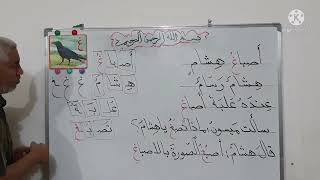 بسم الله الرحمن الرحيم
أصباغ هشام
هشام رسام
عنده علبة أصباغ
سألت ميسون: ماذا تصبغ يا هشام؟
قال هشام: أصبغ الصورة بالأصباغ
أصـ بـا غ
هـ شـا م
علـ بـ ة
تصـ بـ غ